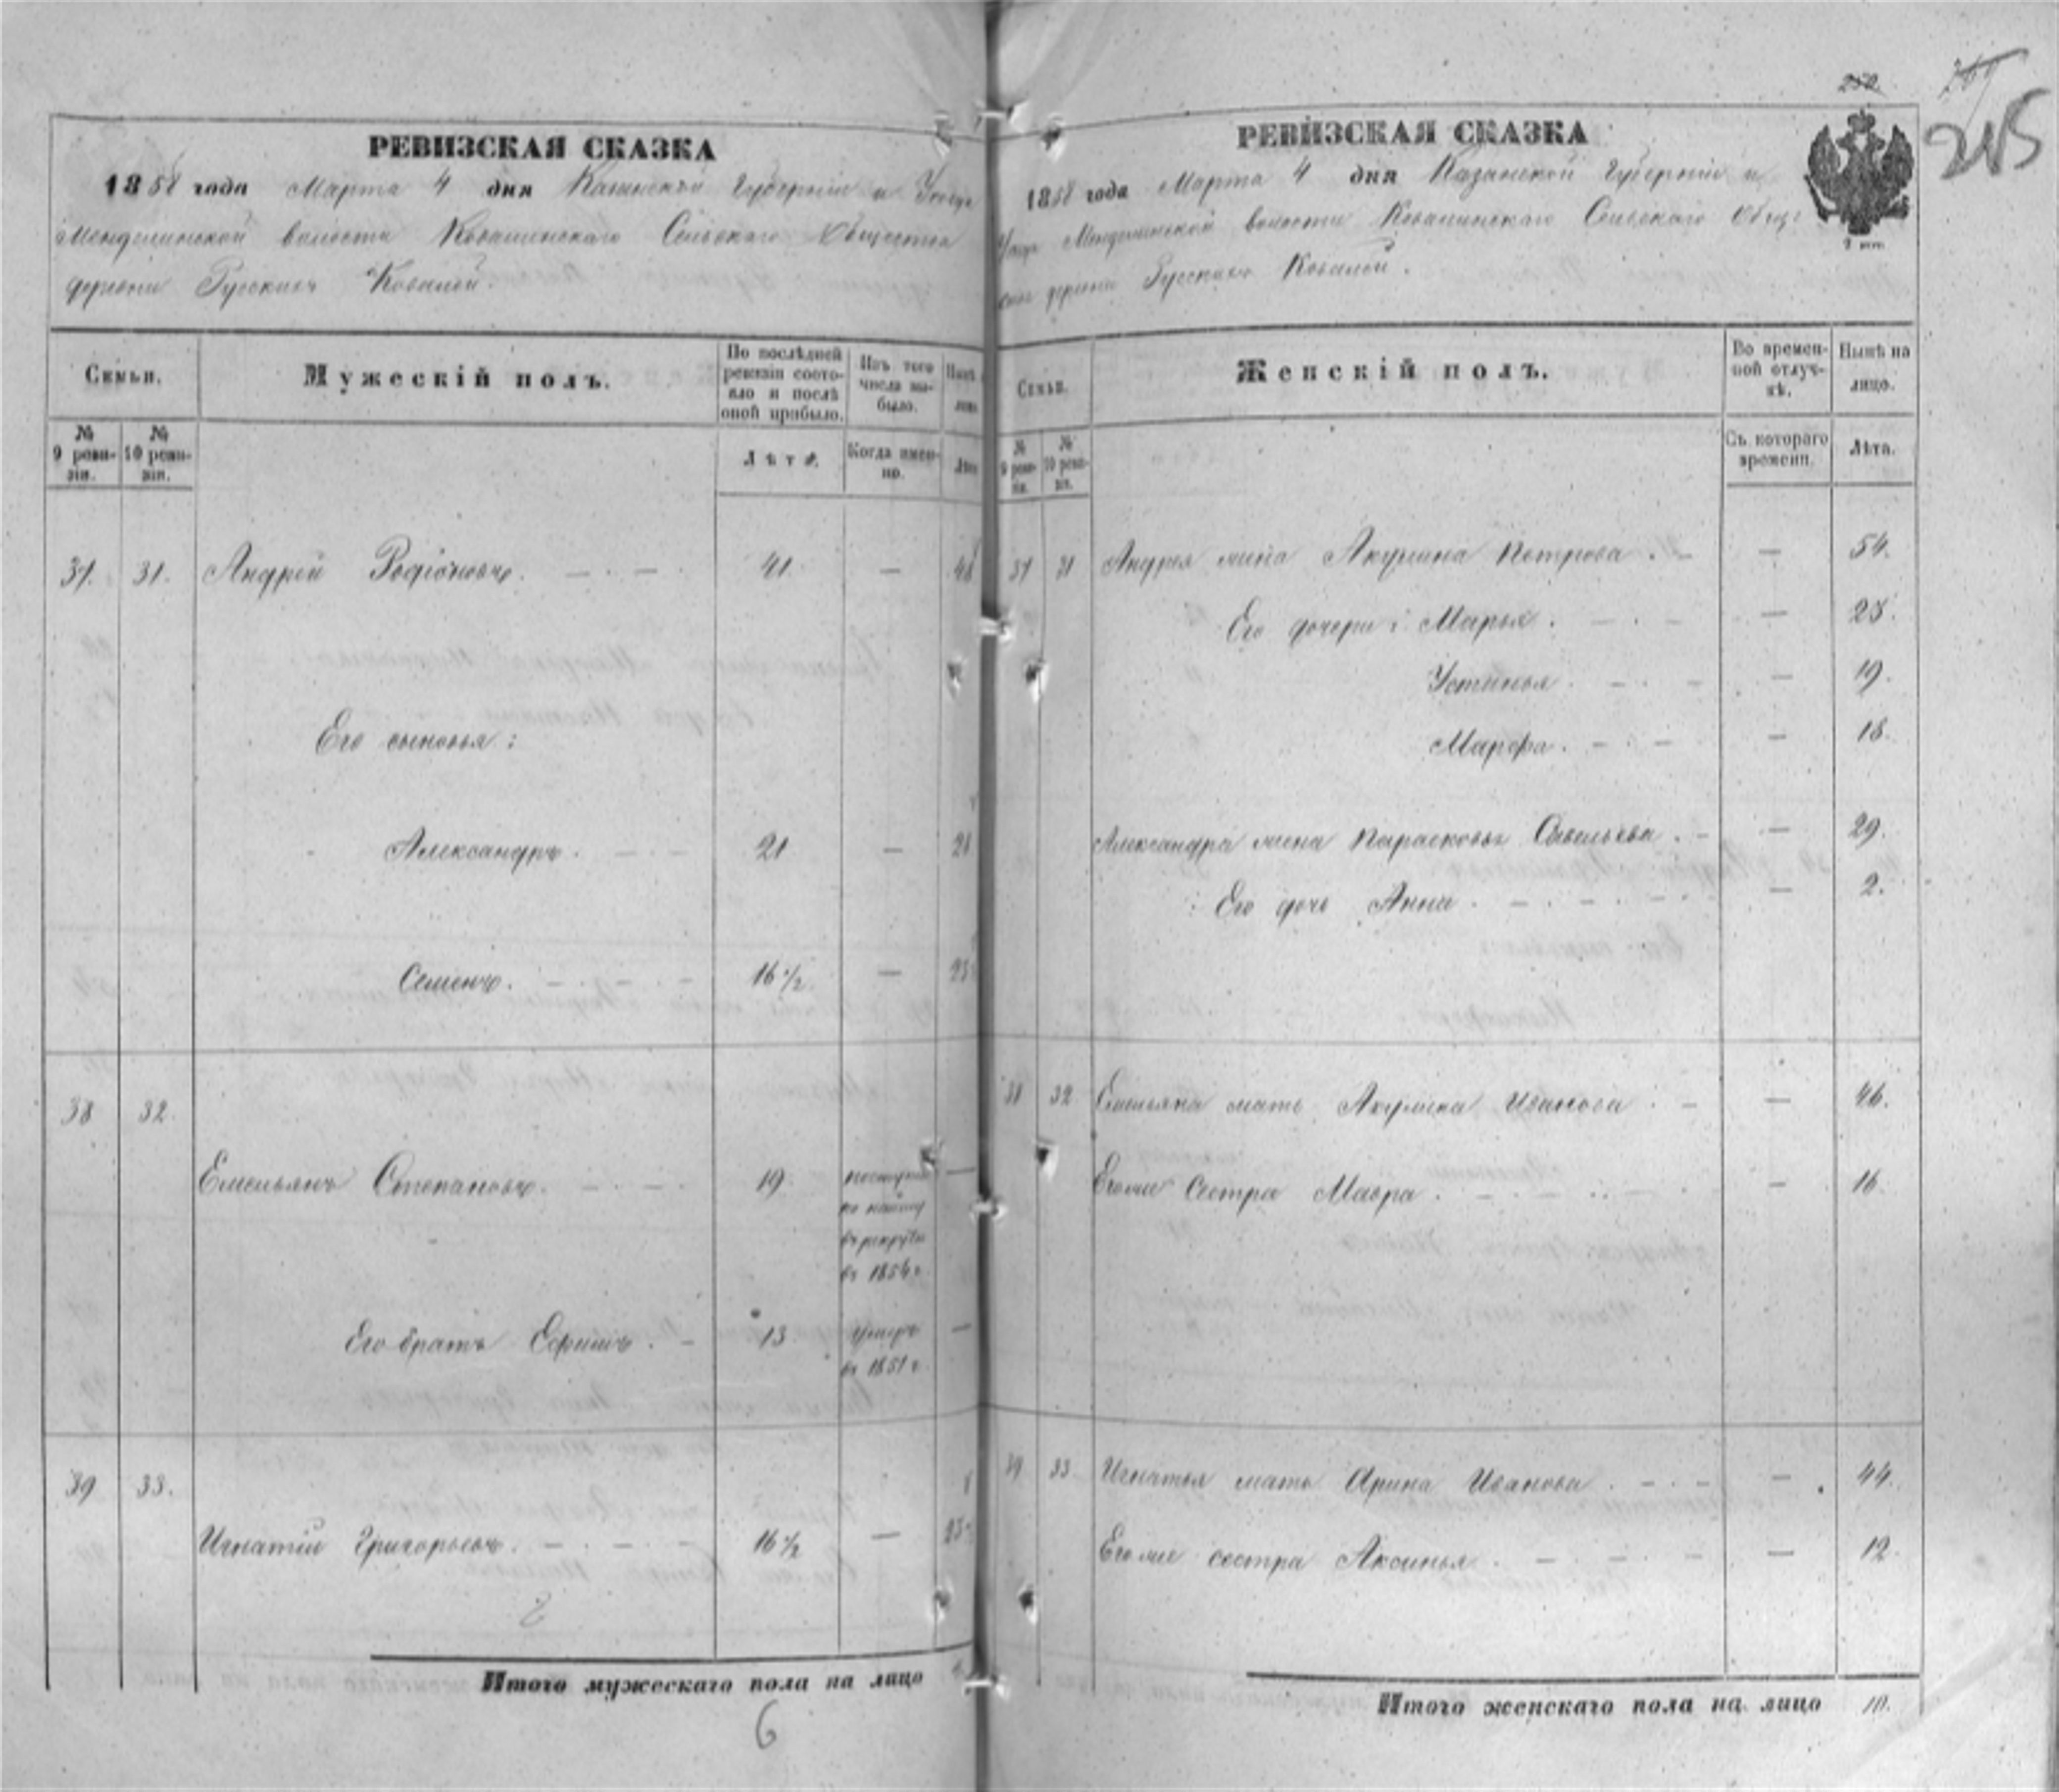 РЕВИЗСКАЯ СКАЗКА
1858 года Марта 4 дня Казанской Губерніи и Уезда
волости Ковалинскаго Сельскаго Общества
деревни Русскихъ Ковалей.
Семьи.
Мужескій полъ.
По послѣдней ревизіи состояло и послѣ оной прибыло.
Изъ того числа выбыло.
№ 9 ревизіи.
№ 10 ревизіи.
Лѣта.
Когда именно.
37. 31. Андрей Родіоновъ. 41. — 48
Его сыновья:
Александръ. 21 — 28
Семенъ. 16 1/2 — 23
38 32
Емельянъ Степановъ. 19. поступилъ —
по найму
въ рекруты
въ 1854 г.
Его братъ Ефимъ. 13 умеръ —
въ 1851 г.
39 33.
Игнатій Григорьевъ. 16 1/2 — 23
Итого мужескаго пола на лицо
6
250
215
РЕВИЗСКАЯ СКАЗКА
1858 года Марта 4 дня Казанской Губерніи и
волости Ковалинскаго Сельскаго Обще
деревни Русскихъ Ковалей.
Семьи.
Женскій полъ.
Во временной отлучкѣ.
Нынѣ на лицо.
№ 9 ревизіи.
№ 10 ревизіи.
Съ котораго времени.
Лѣта.
37 31 Андрея жена Акулина Петрова. — 54.
Его дочери: Марья. — 23.
Устинья. — 19.
Марфа. — 18.
Александра жена Парасковья Савельева. — 29.
Его дочь Анна. — 2.
38 32 Емельяна мать Акулина Иванова. — 46.
Егоже сестра Мавра. — 16.
39 33 Игнатья мать Арина Иванова. — 44.
Егоже сестра Аксинья. — 12.
Итого женскаго пола на лицо 10.